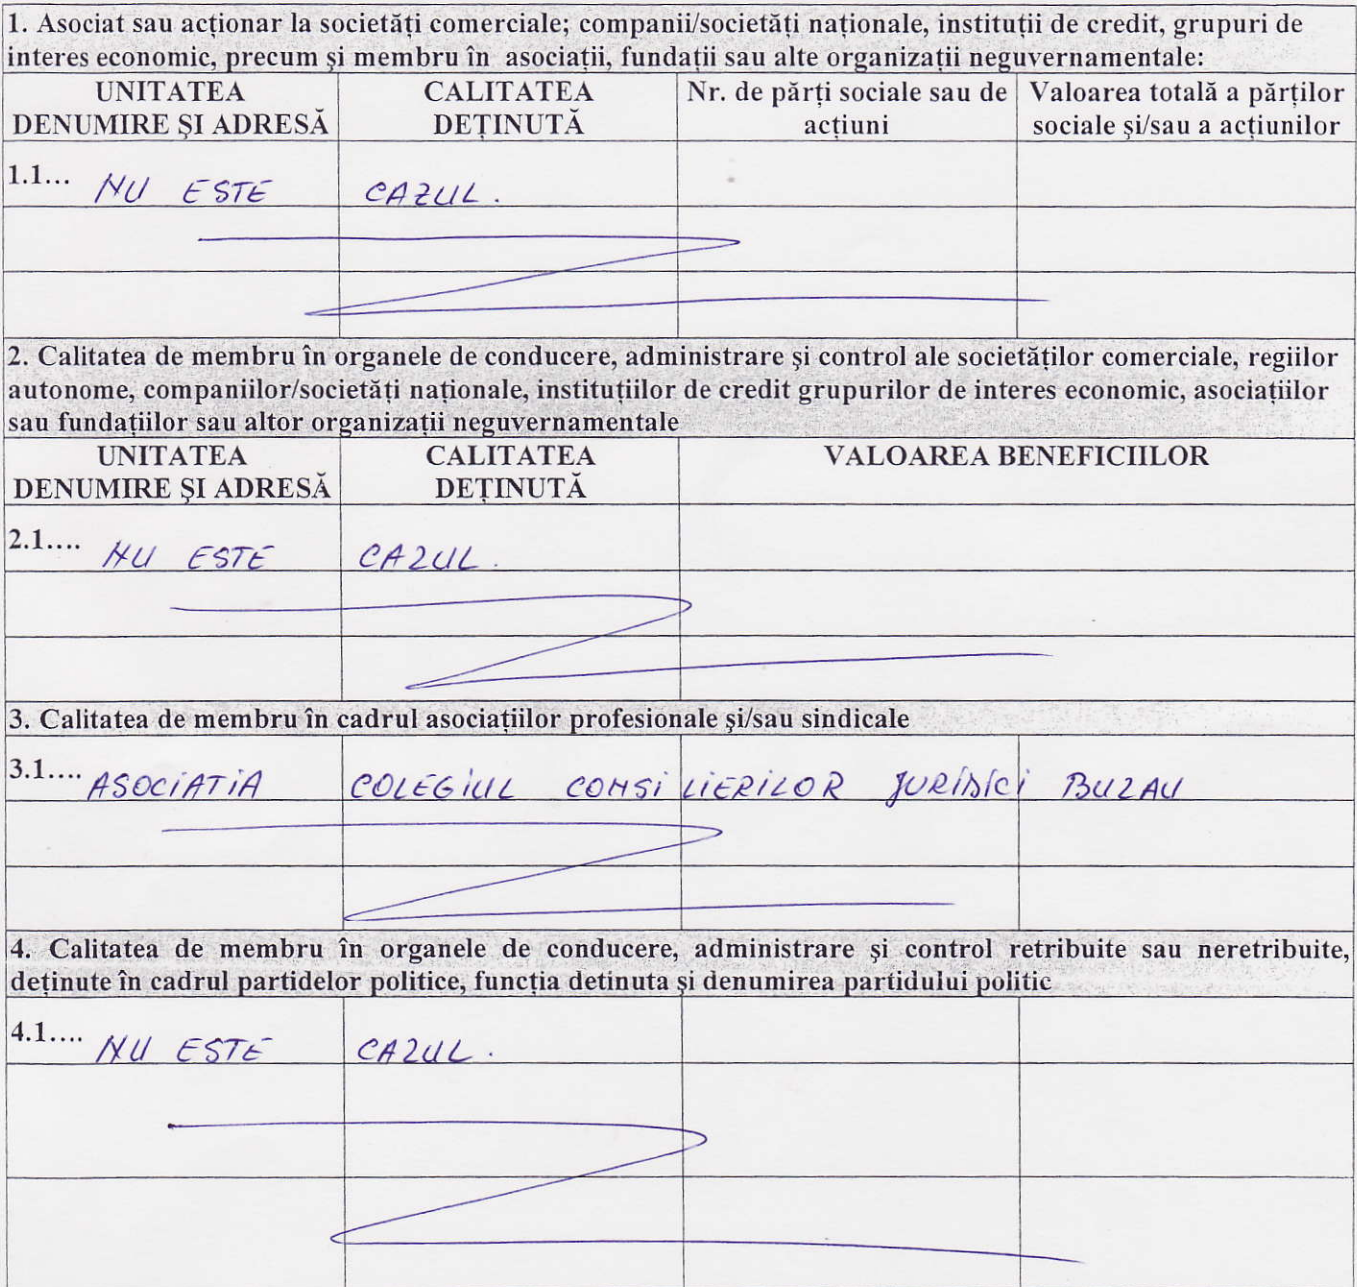 1. Asociat sau acționar la societăți comerciale; companii/societăți naționale, instituții de credit, grupuri de
interes economic, precum și membru în asociații, fundații sau alte organizații neguvernamentale:
UNITATEA DENUMIRE ȘI ADRESĂ
CALITATEA DEȚINUTĂ
Nr. de părți sociale sau de acțiuni
Valoarea totală a părților sociale și/sau a acțiunilor
1.1... NU ESTE CAZUL.
2. Calitatea de membru în organele de conducere, administrare și control ale societăților comerciale, regiilor
autonome, companiilor/societăți naționale, instituțiilor de credit grupurilor de interes economic, asociațiilor
sau fundațiilor sau altor organizații neguvernamentale
UNITATEA DENUMIRE ȘI ADRESĂ
CALITATEA DEȚINUTĂ
VALOAREA BENEFICIILOR
2.1.... NU ESTE CAZUL.
3. Calitatea de membru în cadrul asociațiilor profesionale și/sau sindicale
3.1.... ASOCIATIA COLEGIUL CONSILIERILOR JURIDICI BUZAU
4. Calitatea de membru în organele de conducere, administrare și control retribuite sau neretribuite,
deținute în cadrul partidelor politice, funcția detinuta și denumirea partidului politic
4.1.... NU ESTE CAZUL.